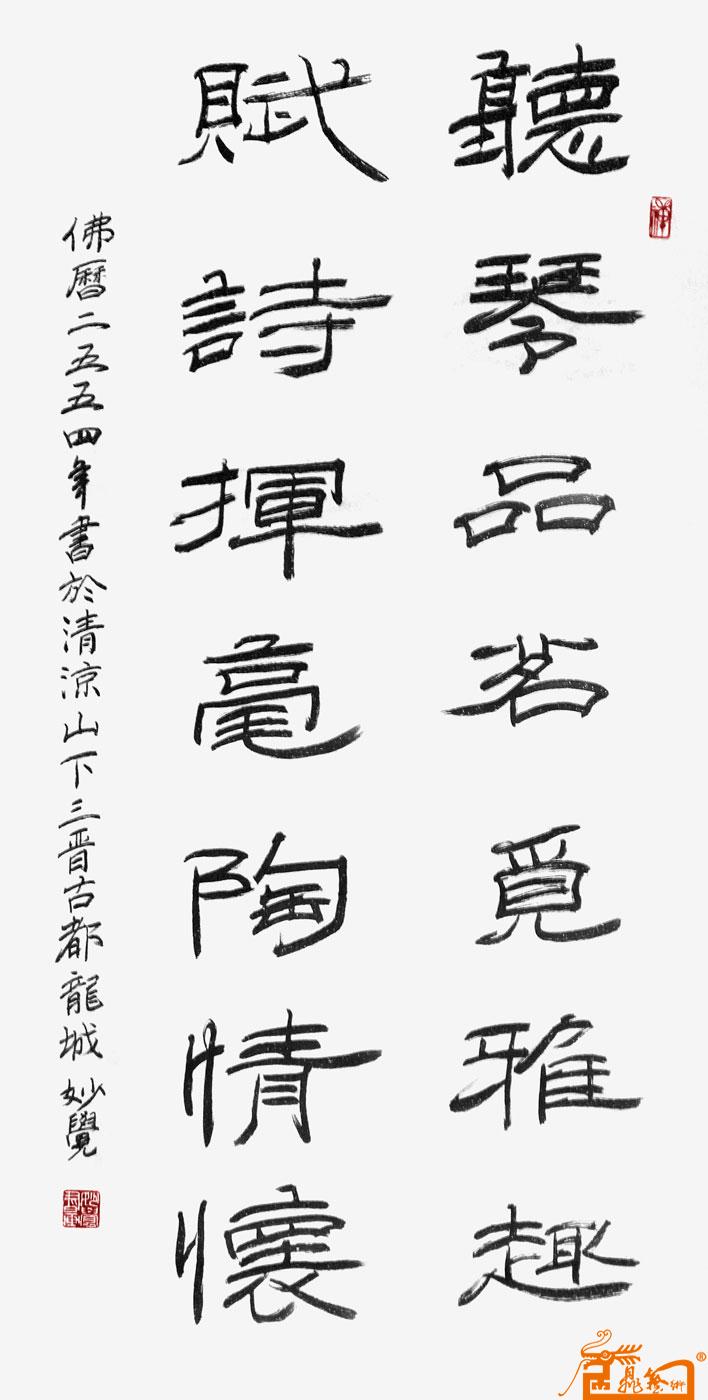 聽琴品茗覓雅趣
賦詩揮毫陶情懷
佛曆二五五四年書於清涼山下三晋古都龍城 妙覺